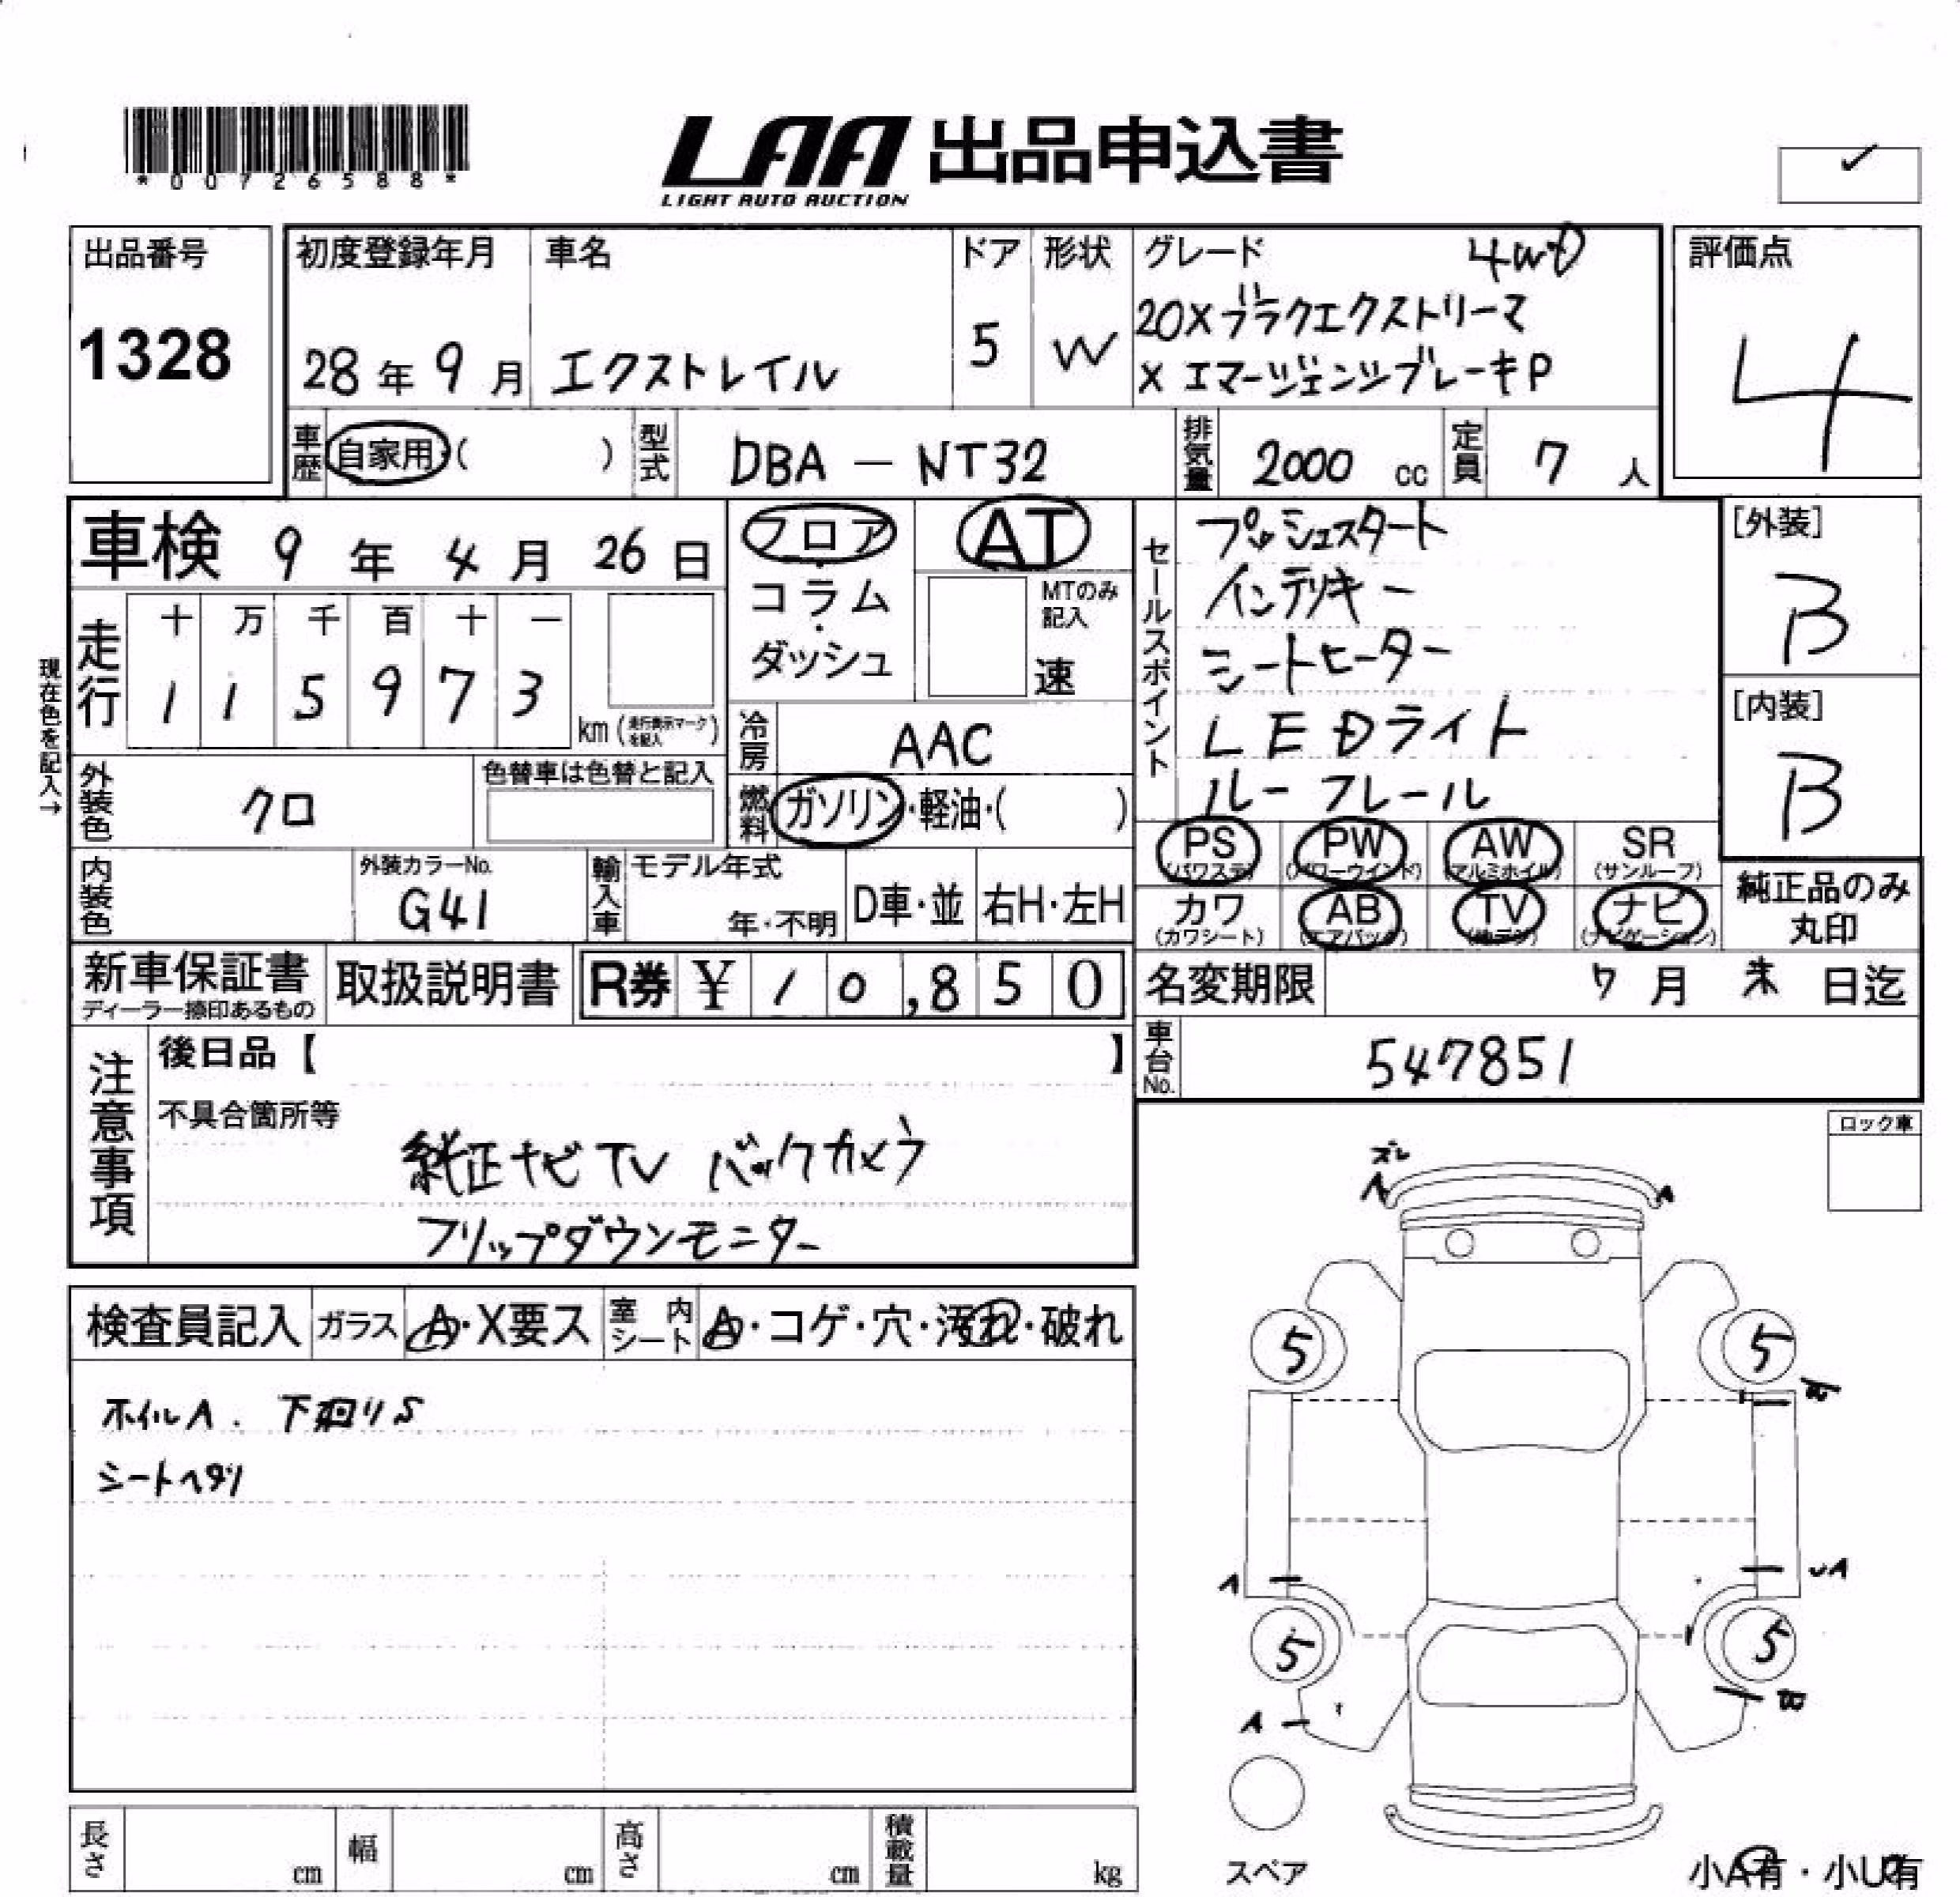 *00726588*
LAA 出品申込書
LIGHT AUTO AUCTION
出品番号
1328
初度登録年月
28年 9月
車名
エクストレイル
ドア
5
形状
W
グレード 4WD
20Xブラクエクストリーマ
X エマージェンシブレーキP
評価点
4
車歴 自家用・( )
型式 DBA — NT32
排気量 2000 cc
定員 7 人
車検 9 年 4 月 26 日
フロア・
コラム・
ダッシュ
AT
MTのみ
記入
速
走行
十 万 千 百 十 一
1 1 5 9 7 3
km (走行表示マークを記入)
現在色を記入→
外装色 クロ
色替車は色替と記入
冷房 AAC
燃料 ガソリン・軽油・( )
内装色
外装カラーNo.
G41
輸入車
モデル年式
年・不明
D車・並
右H・左H
セールスポイント
プッシュスタート
インテリキー
シートヒーター
LEDライト
ルーフレール
[外装]
B
[内装]
B
PS (パワステ) PW (パワーウインド) AW (アルミホイル) SR (サンルーフ)
カワ (カワシート) AB (エアバック) TV (地デジ) ナビ (ナビゲーション)
純正品のみ
丸印
新車保証書
ディーラー捺印あるもの
取扱説明書
R券 ¥ 10,850
名変期限 7 月 末 日迄
車台No. 547851
注意事項
後日品【 】
不具合箇所等
純正ナビTV バックカメラ
フリップダウンモニター
ロック車
検査員記入
ガラス A・X要ス
室内シート A・コゲ・穴・汚れ・破れ
ホイルA. 下廻りS
シートヘタリ
ズレ
A
A
5
5
A
UA
5
5
A
スペア
長さ cm
幅 cm
高さ cm
積載量 kg
小A有・小U有